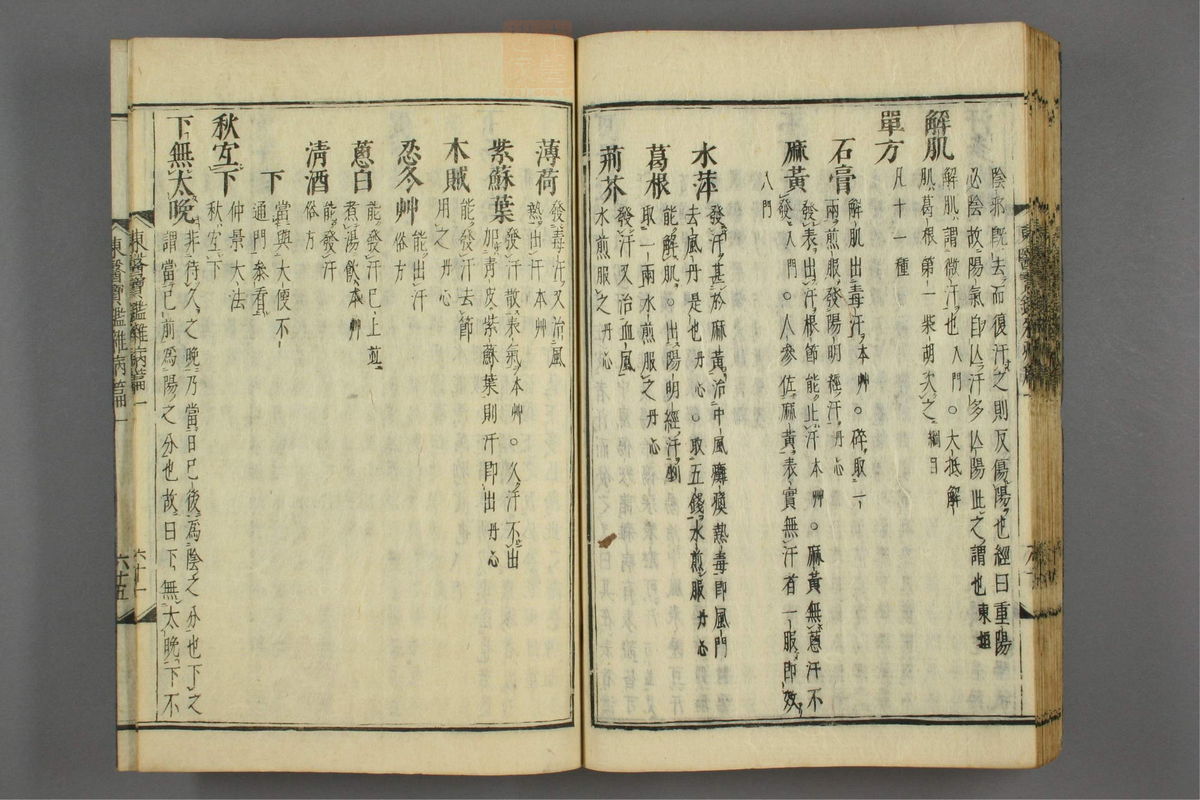 陰邪既去而復汗之則反傷陽也經曰重陽
必陰故陽氣自亾汗多亾陽此之謂也東垣
解肌
解肌謂微汗也入門○大抵解
肌葛根第一柴胡次之綱目
單方
凡十一種
石膏
解肌出毒汗本艸○碎取一
兩煎服發陽明經汗丹心
麻黃
發表出汗根節能止汗本艸○麻黃無蔥汗不
發入門○人參佐麻黃表實無汗者一服即效
入門
水萍
發汗甚於麻黃治中風癱瘓熱毒即風門
去風丹是也丹心○取五錢水煎服丹心
葛根
能解肌○出陽明經汗
取一兩水煎服之丹心
荊芥
發汗又治血風
水煎服之丹心
薄荷
發毒汗又治風
熱出汗本艸
紫蘇葉
發汗散表氣本艸○久汗不出
加青皮紫蘇葉則汗即出丹心
木賊
能發汗去節
用之
忍冬艸
能出汗
俗方
蔥白
能發汗已上並
煮湯飲本艸
清酒
能發汗
俗方
下
當與大便不
通門參看
秋宜下
仲景大法
秋宜下
下無太晚
非待久之晚乃當日巳後爲陰之分也下之
謂當巳前爲陽之分也故曰下無太晚下不
東醫寶鑑雜病篇一
六十一
東醫寶鑑雜病篇一
六十五